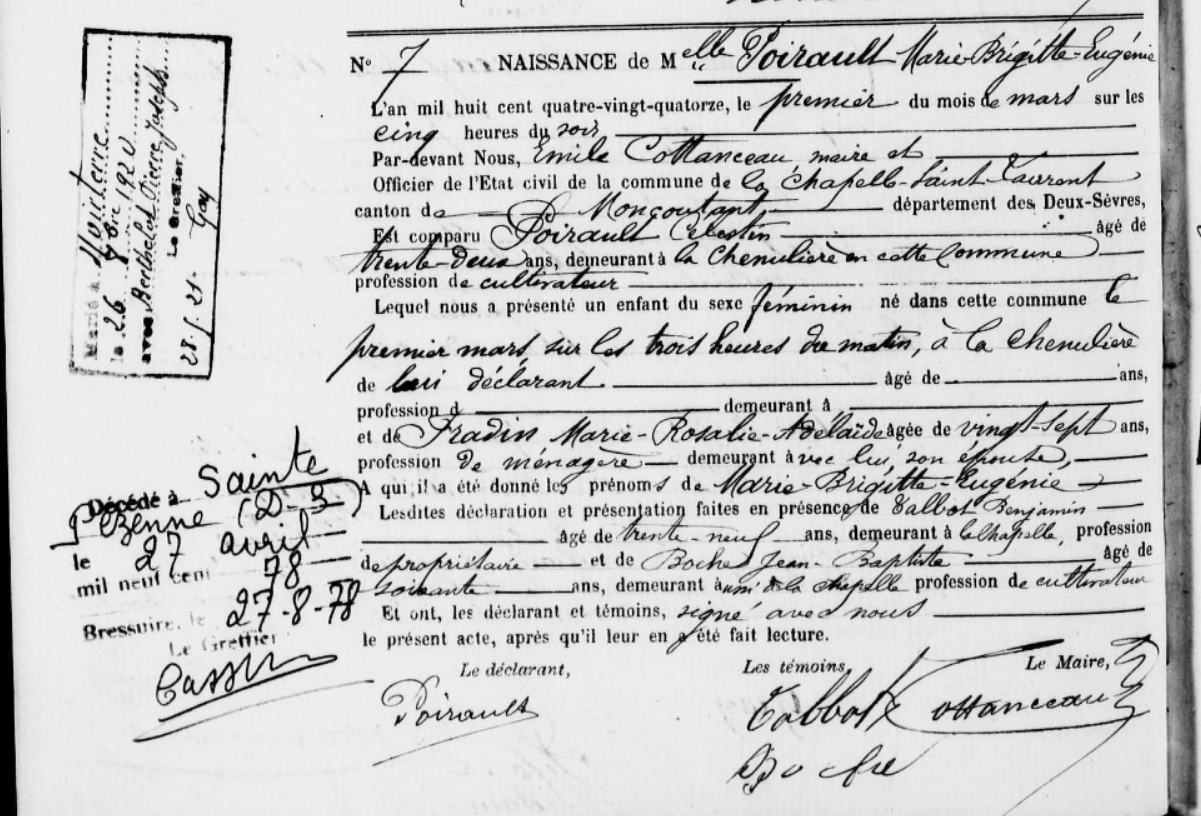 N° 7 NAISSANCE de Melle Poirault Marie-Brigitte-Eugénie
L'an mil huit cent quatre-vingt-quatorze, le premier du mois de mars sur les
cinq heures du soir
Par-devant Nous, Emile Cottanceau maire et
Officier de l'Etat civil de la commune de la Chapelle-Saint-Laurent
canton de Moncoutant département des Deux-Sèvres,
Est comparu Poirault Célestin âgé de
trente-deux ans, demeurant à la Chenulière en cette commune
profession de cultivateur
Lequel nous a présenté un enfant du sexe féminin né dans cette commune le
premier mars, sur les trois heures du matin, à la Chenulière
de lui déclarant âgé de ans,
profession d demeurant à
et de Fradin Marie-Rosalie-Adelaïde âgée de vingt-sept ans,
profession de ménagère demeurant avec lui, son épouse,
A qui il a été donné les prénoms de Marie-Brigitte-Eugénie
Lesdites déclaration et présentation faites en présence de Talbot Benjamin
âgé de trente-neuf ans, demeurant à la Chapelle, profession
de propriétaire et de Boche Jean-Baptiste âgé de
soixante ans, demeurant à la chapelle profession de cultivateur
Et ont, les déclarant et témoins, signé avec nous
le présent acte, après qu'il leur en a été fait lecture.
Le déclarant, Les témoins, Le Maire,
Poirault Talbot Cottanceau
Boche
Marié à
le 26 8bre 1920
avec Berthelot Pierre Joseph
Le Greffier,
28/5 21.
Décédé à Sainte
(D-S)
le 27 avril
mil neuf cent 78
Bressuire, le 27-8-78
Le Greffier